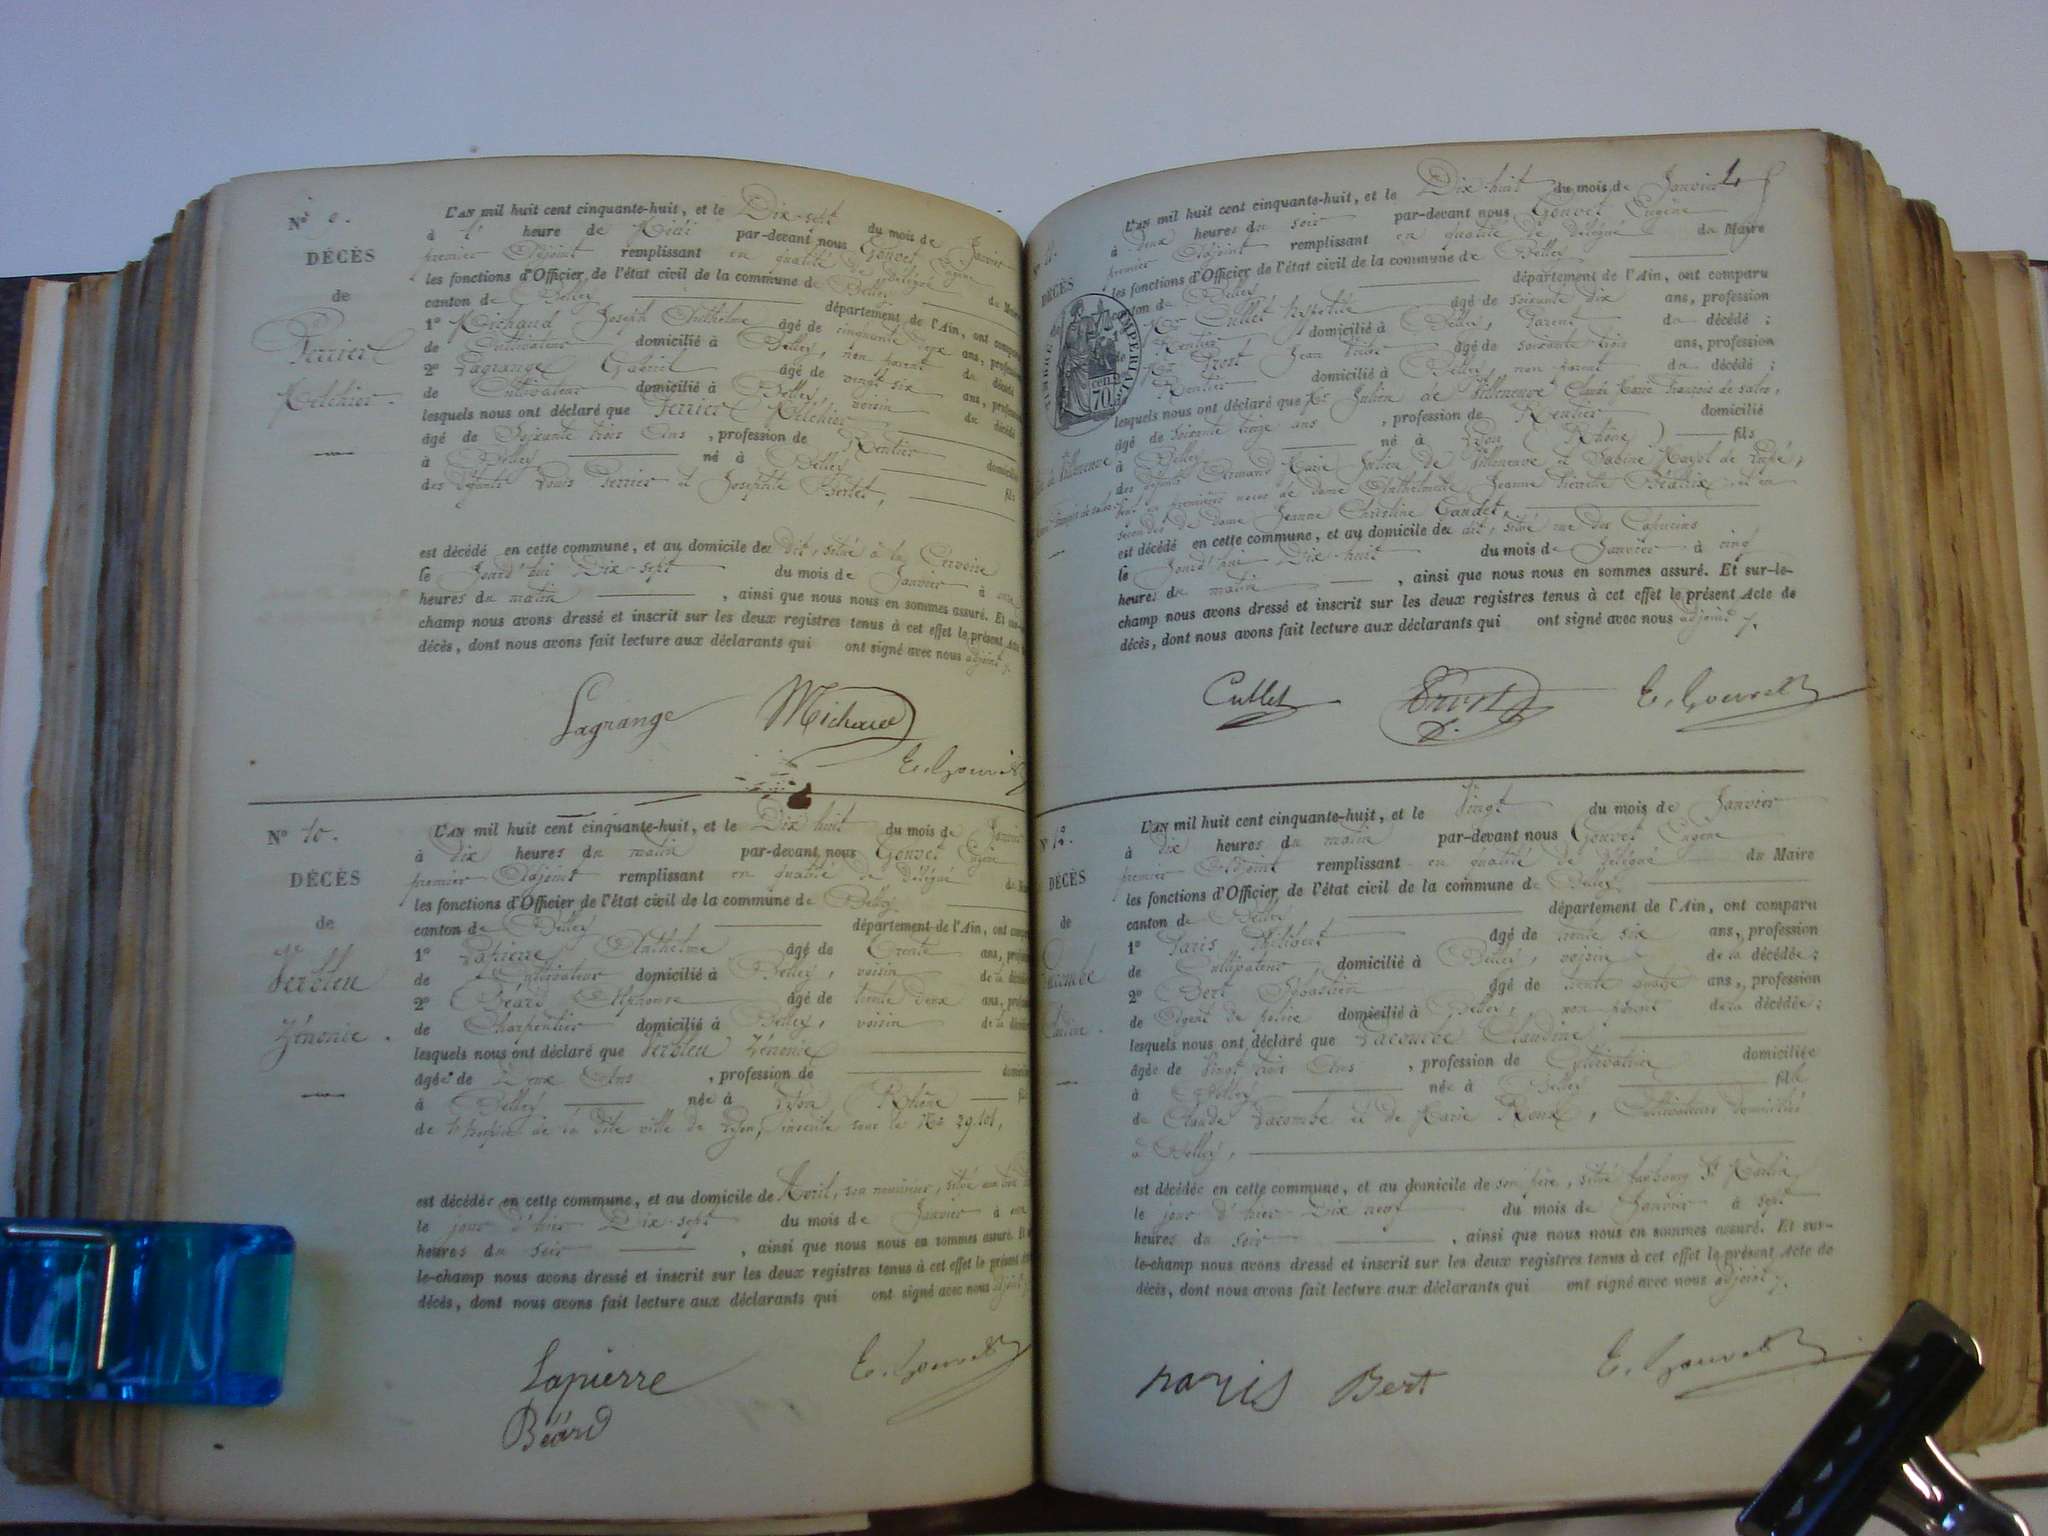 N° 9.
DÉCÈS
de
Perrier
Melchior.
L'AN mil huit cent cinquante-huit, et le Dix-sept du mois de Janvier
à l' heure de Midi par-devant nous Gouvet Eugène
premier Adjoint remplissant en qualité de délégué du Maire
les fonctions d'Officier de l'état civil de la commune de Belley
canton de Belley département de l'Ain, ont comparu
1° Michaud Joseph Anthelme âgé de cinquante deux ans, profession
de Cultivateur domicilié à Belley, non parent du décédé
2° Lagrange Gabriel âgé de vingt six ans, profession
de Cultivateur domicilié à Belley, voisin du décédé
lesquels nous ont déclaré que Perrier Melchior
âgé de Soixante trois Ans, profession de Rentier domicilié
à Belley né à Belley fils
des défunts Louis Perrier et Josephte Bertet,
est décédé en cette commune, et au domicile du dit, situé à la
le Jourd'hui Dix-sept du mois de Janvier à onze
heures du matin, ainsi que nous nous en sommes assuré. Et sur-le-
champ nous avons dressé et inscrit sur les deux registres tenus à cet effet le présent Acte de
décès, dont nous avons fait lecture aux déclarants qui ont signé avec nous adjoint
Lagrange Michaud
E. Gouvet
N° 10.
DÉCÈS
de
Verbleu
Zénonie.
L'AN mil huit cent cinquante-huit, et le Dix huit du mois de Janvier
à dix heures du matin par-devant nous Gouvet Eugène
premier Adjoint remplissant en qualité de délégué du Maire
les fonctions d'Officier de l'état civil de la commune de Belley
canton de Belley département de l'Ain, ont comparu
1° Lapierre Anthelme âgé de Trente ans, profession
de Cultivateur domicilié à Belley, voisin de la décédée
2° Béard Alphonse âgé de trente deux ans, profession
de Charpentier domicilié à Belley, voisin de la décédée
lesquels nous ont déclaré que Verbleu Zénonie
âgée de Deux Ans, profession de domiciliée
à Belley née à Lyon Rhône fille
de l'hospice de la dite ville de Lyon, inscrite sous le N° 29101,
est décédée en cette commune, et au domicile de Avril, son nourricier, situé
le jour d'hier Dix-sept du mois de Janvier à
heures du soir, ainsi que nous nous en sommes assuré. Et sur-
le-champ nous avons dressé et inscrit sur les deux registres tenus à cet effet le présent Acte de
décès, dont nous avons fait lecture aux déclarants qui ont signé avec nous adjoint
Lapierre E. Gouvet
Béard
4
11.
DÉCÈS
de
de Villeneuve
TIMBRE IMPÉRIAL
70 cen.
L'AN mil huit cent cinquante-huit, et le Dix-huit du mois de Janvier
à deux heures du soir par-devant nous Gouvet Eugène
premier Adjoint remplissant en qualité de délégué du Maire
les fonctions d'Officier de l'état civil de la commune de Belley
canton de Belley département de l'Ain, ont comparu
Mr Cullet âgé de soixante dix ans, profession
Rentier domicilié à Belley, Parent du décédé;
Mr Prost Jean âgé de soixante trois ans, profession
Rentier domicilié à Belley, non parent du décédé;
lesquels nous ont déclaré que Mr Julien de Villeneuve Claude Marie François de sales,
âgé de soixante treize ans, profession de Rentier domicilié
à Belley né à Lyon (Rhône) fils
des défunts Armand Marie Julien de Villeneuve et Sabine Mazol de Lupé;
en premières noces de dame Anthelmette Jeanne Béatrix, et en
secondes de dame Jeanne Christine Gaudet,
est décédé en cette commune, et au domicile du dit, situé rue des Capucins
le Jourd'hui Dix huit du mois de Janvier à cinq
heures du matin, ainsi que nous nous en sommes assuré. Et sur-le-
champ nous avons dressé et inscrit sur les deux registres tenus à cet effet le présent Acte de
décès, dont nous avons fait lecture aux déclarants qui ont signé avec nous adjoint
Cullet Prost E. Gouvet
N° 12.
DÉCÈS
de
Lacombe
Claudine.
L'AN mil huit cent cinquante-huit, et le Vingt du mois de Janvier
à dix heures du matin par-devant nous Gouvet Eugène
premier Adjoint remplissant en qualité de délégué du Maire
les fonctions d'Officier de l'état civil de la commune de Belley
canton de Belley, département de l'Ain, ont comparu
1° Paris Philibert âgé de trente six ans, profession
de Cultivateur domicilié à Belley, voisin de la décédée;
2° Bert Sébastien âgé de trente quatre ans, profession
de Agent de police domicilié à Belley, non parent de la décédée:
lesquels nous ont déclaré que Lacombe Claudine
âgée de Vingt trois Ans, profession de Cultivatrice domiciliée
à Belley née à Belley fille
de Claude Lacombe et de Marie Roux, Cultivateurs domiciliés
à Belley,
est décédée en cette commune, et au domicile de son père, situé faubourg St Martin
le jour d'hier Dix neuf du mois de Janvier à sept
heures du soir, ainsi que nous nous en sommes assuré. Et sur-
le-champ nous avons dressé et inscrit sur les deux registres tenus à cet effet le présent Acte de
décès, dont nous avons fait lecture aux déclarants qui ont signé avec nous adjoint
Paris Bert E. Gouvet